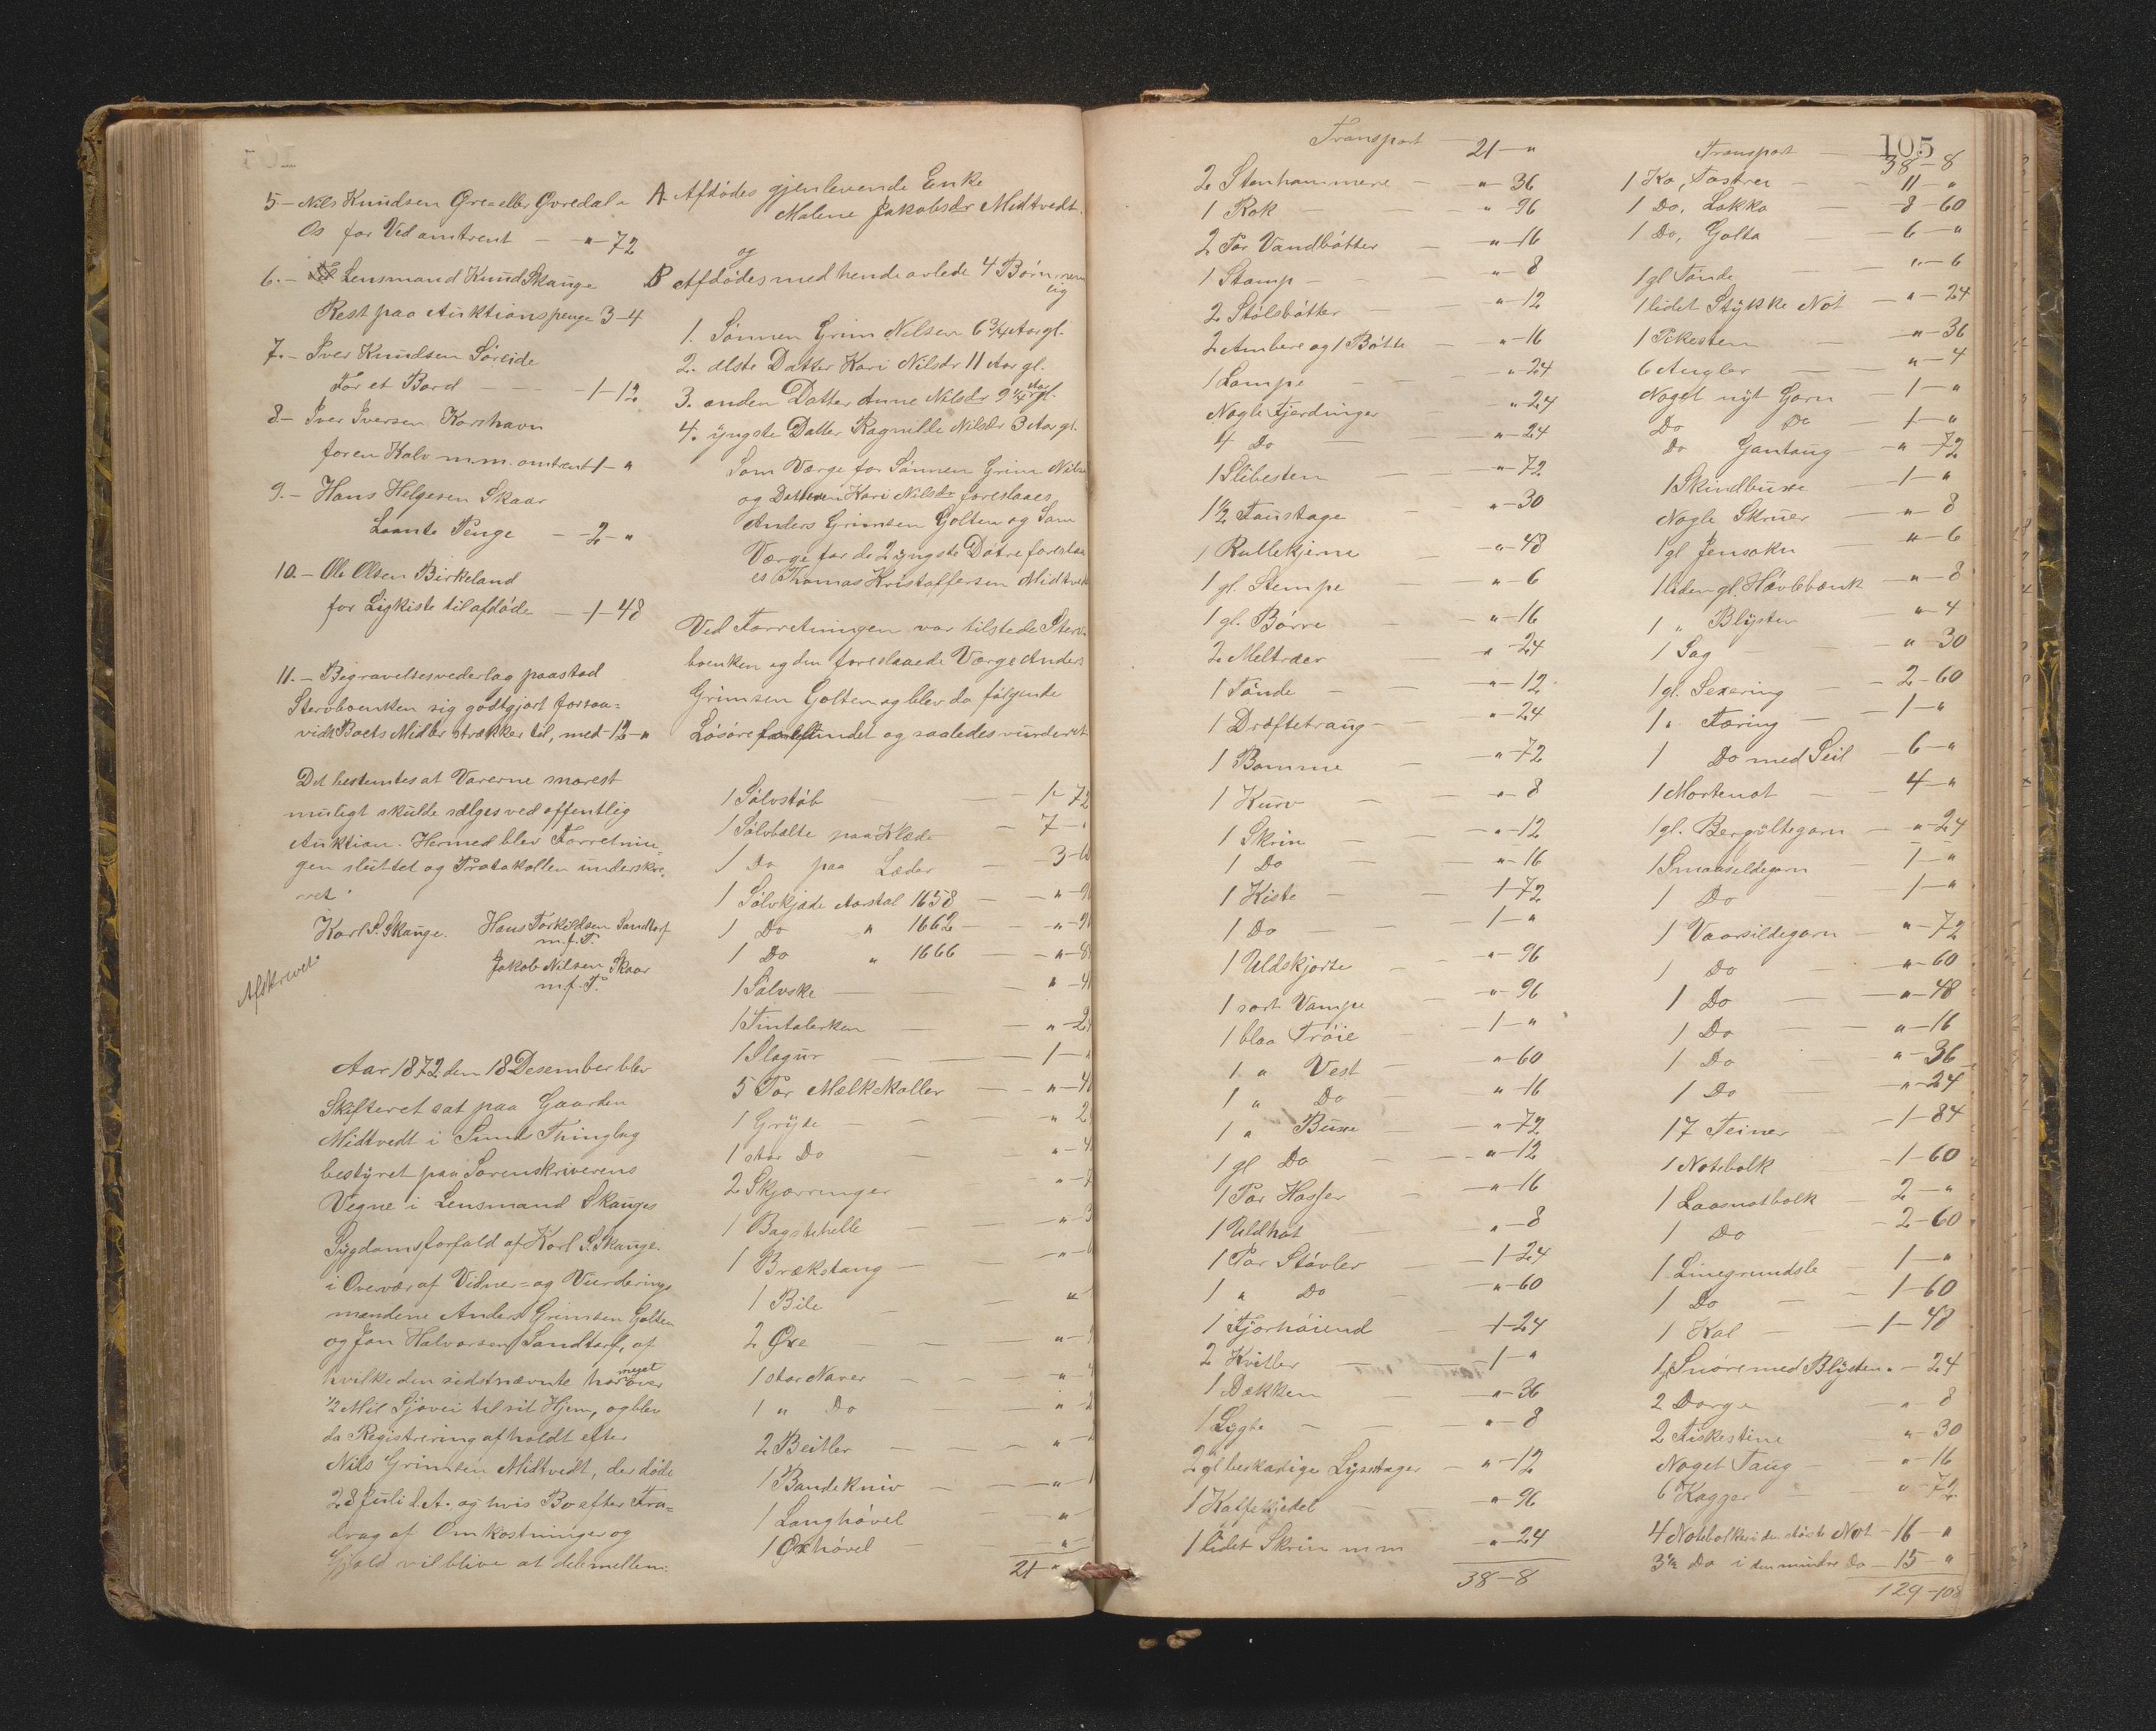 5.- Nils Knudsen Øre- eller Øvredal i
Os for Ved omtrent - "-72
6.- Lensmand Knud Skauge
Rest paa Auktionspenge 3-4
7.- Iver Knudsen Söreide
For et Bord - - -1-12
8- Iver Iversen Korshavn
for en Kalv m.m. omtrent 1-"
9.- Hans Helgesen Skaar
Laante Penge -2-"
10.- Ole Olsen Birkeland
for Ligkiste til afdöde -1-48
11.- Begravelsesvederlag paastod
Stervboenken sig godtgjort forsaa=
vidt Boets Midler strækker til, med -12-"
Det bestemtes at Varerne snarest
muligt skulde sælges ved offentlig
Auktion. Hermed blev Forretnin=
gen sluttet og Protokollen underskre=
vet.
Karl S. Skauge. Hans Torkildsen Sandtorf
m.f.P.
Jakob Nilsen Skaar
m.f.P.
Afskrevet.
Aar 1872 den 18 Desember blev
Skifteret sat paa Gaarden
Midtvedt i Sunds Thinglag
bestyret paa Sorenskriverens
Vegne i Lensmand Skauges
Sygdomsforfald af Karl S. Skauge.
i Overvær af Vidner- og Vurderings
mændene Anders Grimsen Golten
og Jon Halvorsen Sandtorf, af
hvilke den sidstnævnte har noget over
1/2 Mil Sjövei til sit Hjem, og blev
da Registrering afholdt efter
Nils Grimsen Midtvedt, der döde
28 Juli d.A. og hvis Bo efter Fra=
drag af Omkostninger og
Gjæld vil blive at dele mellem:
A. Afdödes gjenlevende Enke
Malene Jakobsdr Midtvedt.
og
B Afdödes med hende avlede 4 Börn, nem
lig
1. Sönnen Grim Nilsen 6 3/4 Aar gl.
2. ælste Datter Kari Nilsdr 11 Aar gl.
3. anden Datter Anne Nilsdr 9 1/4 Aar gl.
4. yngste Datter Ragnille Nilsdr 3 Aar gl.
Som Værge for Sönnen Grim Nilsen
og Datteren Kari Nilsdr foreslaaes
Anders Grimsen Golten og Som
Værge for de 2 yngste Dötre foreslaa
es Thomas Kristoffersen Midtvedt
Ved Forretningen var tilstede Sterv-
boenken og den foreslaaede Værge Anders
Grimsen Golten og blev da fölgende
Lösöre forefundet og saaledes vurderet
1 Sölvstöb - 1-72
1 Sölvbelte paa Klæde - 7-
1 Do paa Læder - 3-
1 Sölvkjæde Aarstal 1658 - "-9
1 Do " 1662 - "-9
1 Do " 1666 - "-8
1 Sölvske - "-4
1 Tintalerken - "-2
1 Slagur - 1-
5 Par Mælkekoller - "-4
1 Gryte - " 2
1 stor Do "-4
2 Skjærringer "-7
1 Bagstehelle - "-3
1 Brækstang - "-
1 Bile - "
2 Øxe - "-
1 stor Naver - "-
1 " Do "-2
2 Beitler - "-
1 Bandekniv - "-
1 Langhövel "
1 Øxhövel - "
21-"
Transport - 21-"
2 Stenhammere - "-36
1 Rok - "-96
2 Par Vandbötter - "-16
1 Stamp - "-8
2 Stölsbötter - "-12
2 Ambere og 1 Bötte - "-16
1 Lampe - "-24
Nogle Fjerdinger - "-24
4 Do - "-24
1 Slibesten - "-72
1 1/2 Taustage - "-30
1 Rullekjerne "-48
1 gl. Stempe - "-6
1 gl. Börre - "-16
2 Meltræer "-24
1 Tönde - "-12
1 Dröftetraug - "-24
1 Bomme - "-72
1 Kurv - "-8
1 Skrin - "-12
1 Do - "-16
1 Kiste - 1-72
1 Do - 1-"
1 Uldskjorte - "-96
1 sort Vampe - "-96
1 blaa Tröie - 1-"
1 " Vest - "-60
1 " Do - "-16
1 " Buxe - "-72
1 gl Do - "-12
1 Par Hoser - "-16
1 Uldhat "-8
1 Par Stövler - 1-24
1 " Do - "-60
1 Fjorhöiend - 1-24
2 Kvitler - 1-"
1 Dækken - "-36
1 Lygte - "-8
2 gl beskadige Lysestager - "-12
1 Kaffekjedel - "-96
1 lidet Skrin m m "-24
38-8
105
Transport - 38-8
1 Ko, Fostrei - 11-"
1 Do, Lokka - 8-60
1 Do, Golta - 6-"
1 gl Tönde - "-6
1 lidet Stykke Not - "-24
1 Pikesten - "-36
6 Angler - "-4
Noget nyt Garn - 1-"
Do Do - 1-"
Do Gantaug - "-72
1 Skindbuxe - 1-"
Nogle Skruer - "-8
1 gl Jensaku - "-6
1 liden gl. Hövlebænk - "-8
1 " Blysten - "-4
1 Sag - "-30
1 gl. Sexering - 2-60
1 " Færing - 1-"
1 Do med Seil - 6-"
1 Mortenot - 4-"
1 gl. Bergyltegarn - "-24
1 Smaasildegarn - 1-"
1 Do - 1-"
1 Vaarsildegarn - "-72
1 Do - "-60
1 Do - "-48
1 Do - "-16
1 Do - "-36
1 Do - "-24
17 Teiner - 1-84
1 Notebolk - 1-60
1 Laasnotbolk - 2-"
1 Do - 2-60
1 Linegrundsle - 1-"
1 Do - 1-60
1 Kal - 1-48
1 gl Snöre med Blysten "-24
2 Dorge "-8
2 Fiskestine "-30
Noget Taug - "-16
6 Kagger - "-72
4 Notebolker i den störste Not - 16-"
3 1/2 Do i den mindre Do - 15-"
129-108